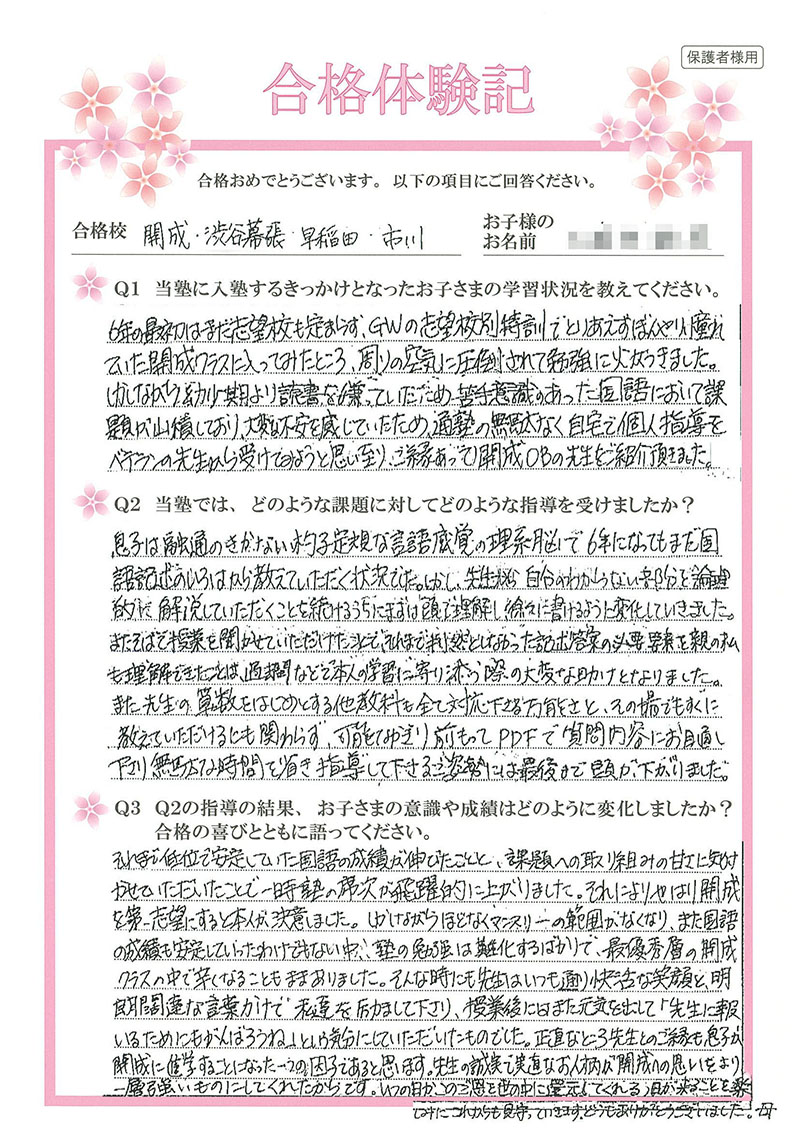 保護者様用
合格体験記
合格おめでとうございます。以下の項目にご回答ください。
合格校 開成・渋谷幕張 早稲田・市川
お子様の
お名前
Q1 当塾に入塾するきっかけとなったお子さまの学習状況を教えてください。
6年の最初はまだ志望校も定まらず、GWの志望校別特訓でとりあえずぼんやり憧れ
ていた開成クラスに入ってみたところ、周りの空気に圧倒されて勉強に火がつきました。
しかしながら幼少期より読書を嫌っていたため、苦手意識のあった国語において課
題が山積しており、大変な不安を感じていたため、通塾の無駄なく自宅で個人指導を
ベテランの先生から受けてみようと思い至り、ご縁あって開成OBの先生をご紹介頂きました。
Q2 当塾では、どのような課題に対してどのような指導を受けましたか？
息子は融通のきかない杓子定規な言語感覚の理系脳で6年になってもまだ国
語記述のいろはから教えていただく状況でした。しかし、先生から自分のわからない部分を論理
的に解説していただくことを続けるうちにまずは頭で理解し徐々に書けるように変化していきました。
またそばで授業を聞かせていただけたことで、それまで判然としなかった記述答案の必要要素を親の私
も理解できたことは、過去問などで本人の学習に寄り添う際の大変な助けとなりました。
また先生の算数をはじめとする他教科も全て対応下さる万能さと、その場でもすぐに
教えていただけるにも関わらず、可能なかぎり前もってPDFで質問内容にお目通し
下さり無駄な時間を省き指導して下さる姿勢には最後まで頭が下がりました。
Q3 Q2の指導の結果、お子さまの意識や成績はどのように変化しましたか？
合格の喜びとともに語ってください。
それまで低位で安定していた国語の成績が伸びたことと、課題への取り組みの甘さに気付
かせていただいたことで一時塾の席次が飛躍的に上がりました。それによりやはり開成
を第一志望にすると本人が決意しました。しかしながらほどなくマンスリーの範囲がなくなり、また国語
の成績も安定していったわけでもない中、塾の勉強は難化するばかりで、最優秀層の開成
クラスの中で辛くなることもままありました。そんな時にも先生はいつも通り快活な笑顔と、明
朗闊達な言葉がけで私達を励まして下さり、授業後にはまた元気を出して「先生に報
いるためにもがんばろうね」という気分にしていただいたものでした。正直なところ先生とのご縁も息子が
開成に進学することになった一つの因子であると思います。先生の誠実で実直なお人柄が開成への思いをより
一層強いものにしてくれたからです。いつの日かこのご恩を世の中に還元してくれる日が来ることを楽
しみにこれからも見守っていきます。どうもありがとうございました。母